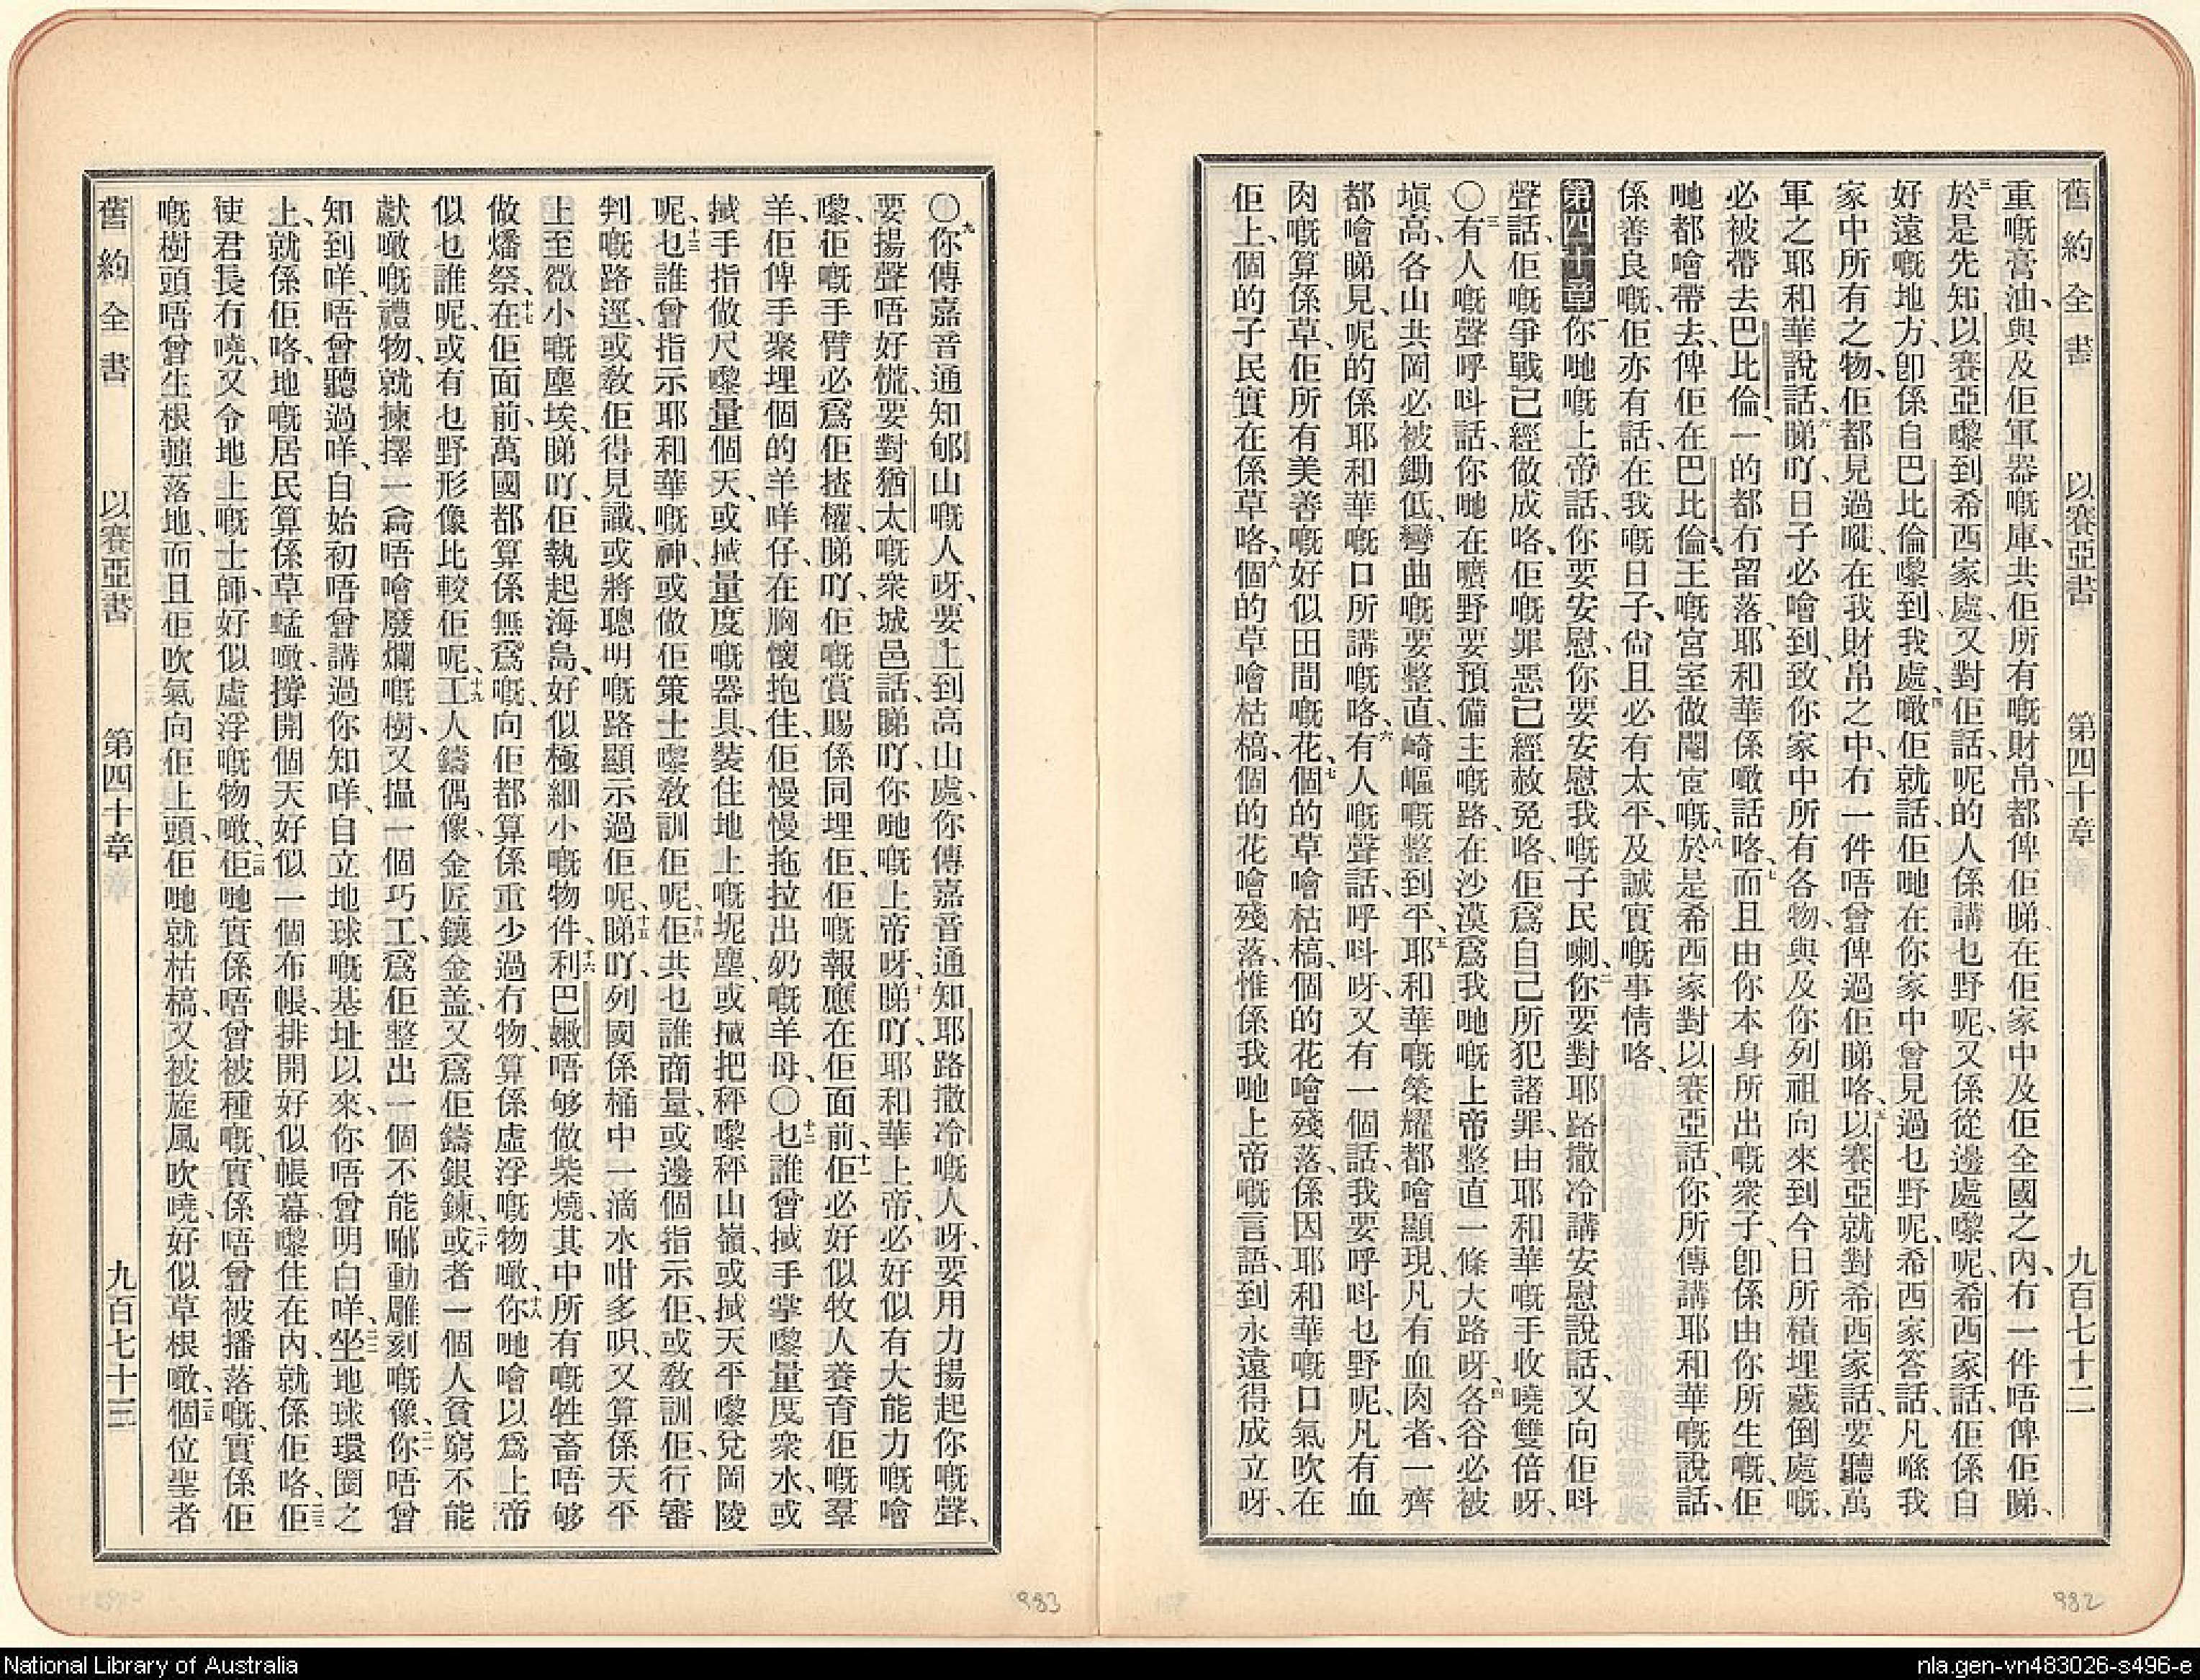 舊約全書 以賽亞書 第四十章 九百七十二
重嘅膏油、與及佢軍器嘅庫、共佢所有嘅財帛、都俾佢睇、在佢家中及佢全國之內、冇一件唔俾佢睇、
三於是先知以賽亞嚟到希西家處、又對佢話、呢的人係講乜野呢、又係從邊處嚟呢、希西家話、佢係自
好遠嘅地方、卽係自巴比倫嚟到我處、四噉佢就話、佢哋在你家中曾見過乜野呢、希西家答話、凡喺我
家中所有之物、佢都見過嘥、在我財帛之中、冇一件唔曾俾過佢睇咯、五以賽亞就對希西家話、要聽萬
軍之耶和華說話、六睇吖、日子必噲到、致你家中所有各物、與及你列祖向來到今日所積埋藏倒處嘅、
必被帶去巴比倫、一的都冇留落、耶和華係噉話咯、七而且由你本身所出嘅衆子、卽係由你所生嘅、佢
哋都噲帶去、俾佢在巴比倫王嘅宮室做閹宦嘅、八於是希西家對以賽亞話、你所傳講耶和華嘅說話、
係善良嘅、佢亦有話、在我嘅日子、尙且必有太平、及誠實嘅事情咯、
第四十章 一你哋嘅上帝話、你要安慰、你要安慰我嘅子民喇、二你要對耶路撒冷講安慰說話、又向佢呌
聲話、佢嘅爭戰已經做成咯、佢嘅罪惡已經赦免咯、佢爲自己所犯諸罪、由耶和華嘅手收嘵雙倍呀、
〇三有人嘅聲呼呌話、你哋在曠野要預備主嘅路、在沙漠爲我哋嘅上帝整直一條大路呀、四各谷必被
塡高、各山共岡必被鋤低、彎曲嘅要整直、崎嶇嘅整到平、五耶和華嘅榮耀都噲顯現、凡有血肉者、一齊
都噲睇見、呢的係耶和華嘅口所講嘅咯、六有人嘅聲話、呼呌呀、又有一個話、我要呼呌乜野呢、凡有血
肉嘅算係草、佢所有美善嘅好似田間嘅花、七個的草噲枯槁、個的花噲殘落、係因耶和華嘅口氣吹在
佢上、個的子民實在係草咯、八個的草噲枯槁、個的花噲殘落、惟係我哋上帝嘅言語、到永遠得成立呀、
〇九你傳嘉音通知郇山嘅人呀、要上到高山處、你傳嘉音通知耶路撒冷嘅人呀、要用力揚起你嘅聲、
要揚聲唔好慌、要對猶太嘅衆城邑話、睇吖、你哋嘅上帝呀、十睇吖、耶和華上帝、必好似有大能力嘅噲
嚟、佢嘅手臂必爲佢揸權、睇吖、佢嘅賞賜係同埋佢、佢嘅報應在佢面前、十一佢必好似牧人養育佢嘅羣
羊、佢俾手聚埋個的羊咩仔、在胸懷抱住、佢慢慢拖拉出奶嘅羊母、〇十二乜誰曾搣手掌嚟量度衆水、或
搣手指做尺嚟量個天、或搣量度嘅器具、裝住地上嘅坭塵、或搣把秤嚟秤山嶺、或搣天平嚟兌岡陵
呢、十三乜誰曾指示耶和華嘅神、或做佢策士嚟敎訓佢呢、十四佢共乜誰商量、或邊個指示佢、或敎訓佢、行審
判嘅路逕、或敎佢得見識、或將聰明嘅路顯示過佢呢、十五睇吖、列國係桶中一滴水咁多呮、又算係天平
上至微小嘅塵埃、睇吖、佢執起海島、好似極細小嘅物件、十六利巴嫩唔够做柴燒、其中所有嘅牲畜唔够
做燔祭、十七在佢面前、萬國都算係無爲嘅、向佢都算係重少過冇物、算係虛浮嘅物噉、十八你哋噲以爲上帝
似乜誰呢、或有乜野形像比較佢呢、十九工人鑄偶像、金匠鑲金盖、又爲佢鑄銀鍊、二十或者一個人貧窮不能
獻噉嘅禮物、就揀擇一㒰唔噲廢爛嘅樹、又揾一個巧工、爲佢整出一個不能喐動雕刻嘅像、二一你唔曾
知到咩、唔曾聽過咩、自始初唔曾講過你知咩、自立地球嘅基址以來、你唔曾明白咩、二二坐地球環圈之
上、就係佢咯、地嘅居民算係草蜢噉、擗開個天好似一個布帳、排開好似帳幕嚟住在內、就係佢咯、二三佢
使君長冇嘵、又令地上嘅士師、好似虛浮嘅物噉、二四佢哋實係唔曾被種嘅、實係唔曾被播落嘅、實係佢
嘅樹頭唔曾生根蘕落地、而且佢吹氣向佢上頭、佢哋就枯槁、又被旋風吹嘵、好似草根噉、二五個位聖者
舊約全書 以賽亞書 第四十章 九百七十三
983
982
National Library of Australia
nla.gen-vn483026-s496-e